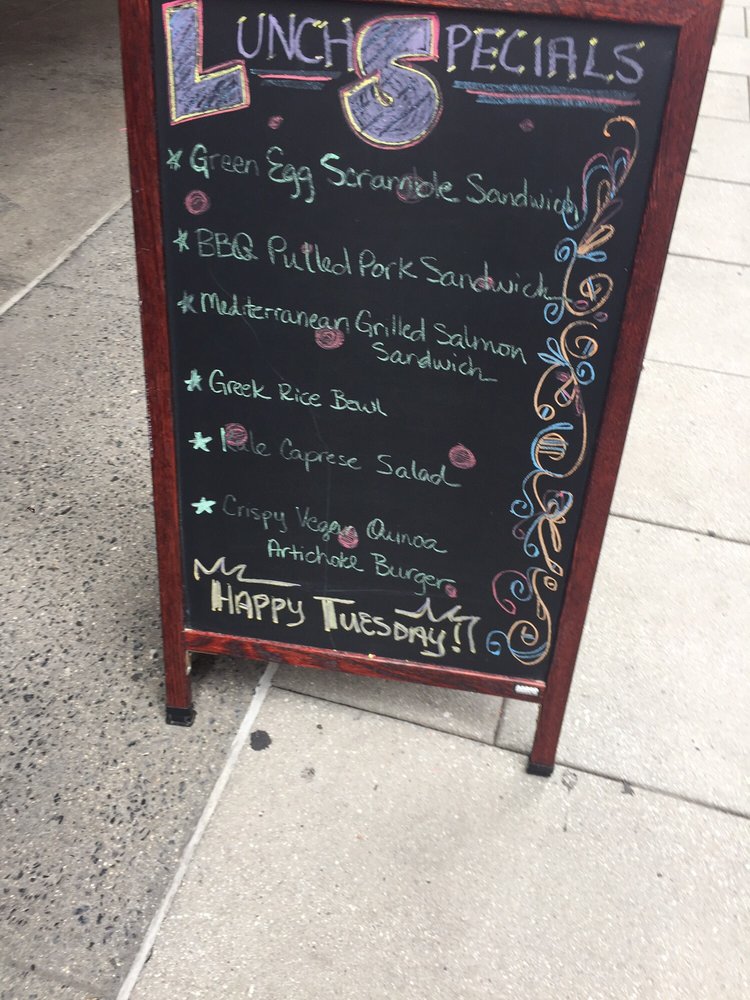 Lunch Specials
Green Egg Scramble Sandwich
BBQ Pulled Pork Sandwich
Mediterranean Grilled Salmon
Sandwich
Greek Rice Bowl
Kale Caprese Salad
Crispy Vegan Quinoa
Artichoke Burger
Happy Tuesday!!